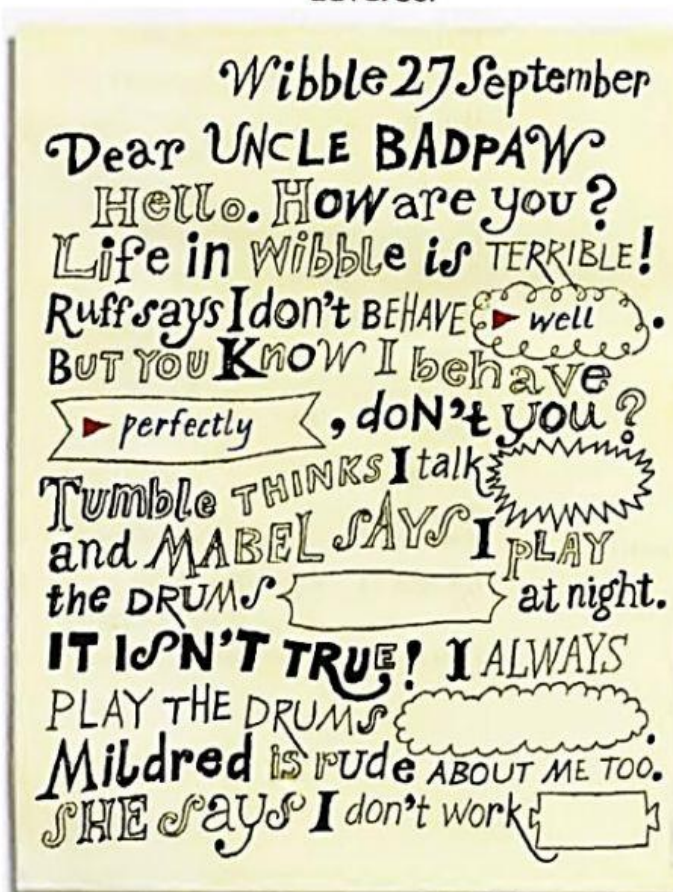 Wibble 27 September
Dear UNCLE BADPAW
Hello. How are you?
Life in Wibble is TERRIBLE!
Ruff says I don't BEHAVE ▶ well.
BUT YOU KNOW I behave
▶ perfectly, doN't you?
Tumble THINKS I talk
and MABEL SAYS I PLAY
the DRUMS at night.
IT ISN'T TRUE! I ALWAYS
PLAY THE DRUMS.
Mildred is rude ABOUT ME TOO.
SHE says I don't work